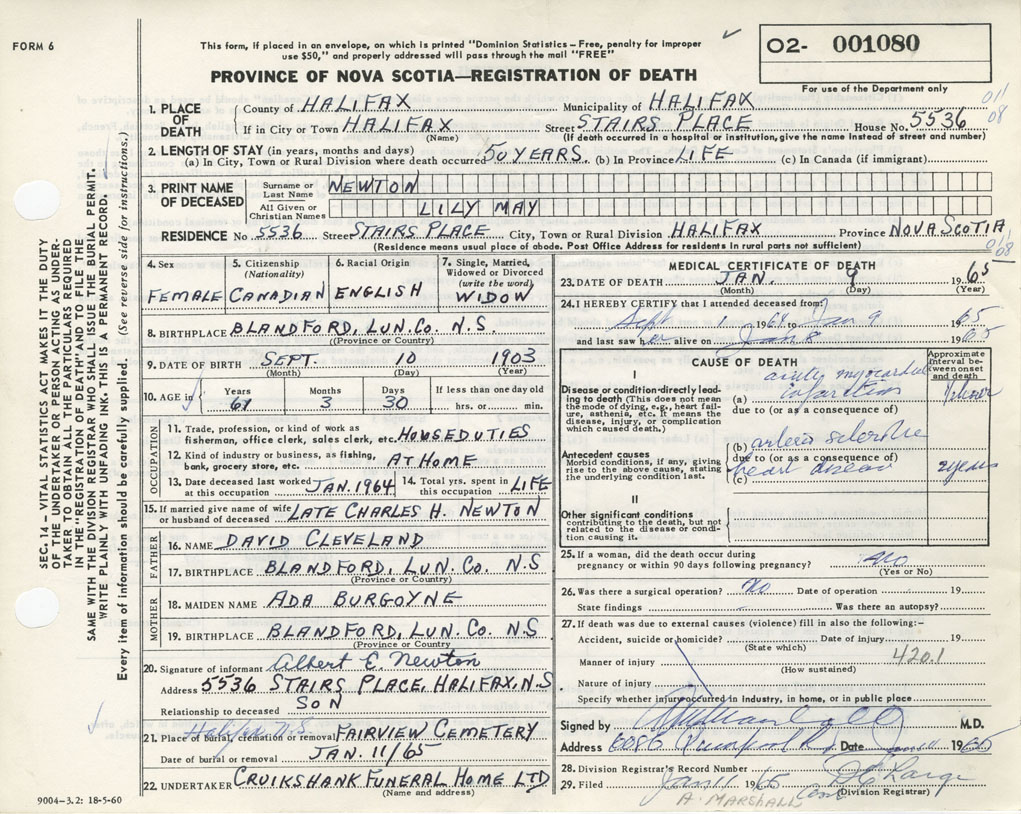 FORM 6
This form, if placed in an envelope, on which is printed "Dominion Statistics – Free, penalty for improper
use $50," and properly addressed will pass through the mail "FREE"
PROVINCE OF NOVA SCOTIA—REGISTRATION OF DEATH
O2- 001080
For use of the Department only
011
08
SEC. 14 – VITAL STATISTICS ACT MAKES IT THE DUTY
OF THE UNDERTAKER OR PERSON ACTING AS UNDER-
TAKER TO OBTAIN ALL THE PARTICULARS REQUIRED
IN THE "REGISTRATION OF DEATH" AND TO FILE THE
SAME WITH THE DIVISION REGISTRAR WHO SHALL ISSUE THE BURIAL PERMIT.
WRITE PLAINLY WITH UNFADING INK. THIS IS A PERMANENT RECORD.
Every item of information should be carefully supplied. (See reverse side for instructions.)
1. PLACE OF DEATH
County of HALIFAX Municipality of HALIFAX
If in City or Town HALIFAX Street STAIRS PLACE House No. 5536
(Name) (If death occurred in a hospital or institution, give the name instead of street and number)
2. LENGTH OF STAY (in years, months and days)
(a) In City, Town or Rural Division where death occurred 50 YEARS. (b) In Province LIFE (c) In Canada (if immigrant)
3. PRINT NAME OF DECEASED
Surname or Last Name NEWTON
All Given or Christian Names LILY MAY
RESIDENCE No. 5536 Street STAIRS PLACE City, Town or Rural Division HALIFAX Province NOVA SCOTIA
(Residence means usual place of abode. Post Office Address for residents in rural parts not sufficient)
011
08
4. Sex FEMALE
5. Citizenship (Nationality) CANADIAN
6. Racial Origin ENGLISH
7. Single, Married, Widowed or Divorced (write the word) WIDOW
8. BIRTHPLACE BLANDFORD, LUN. CO. N.S.
(Province or Country)
9. DATE OF BIRTH SEPT. 10 1903
(Month) (Day) (Year)
10. AGE in Years 61 Months 3 Days 30 If less than one day old hrs. or min.
OCCUPATION
11. Trade, profession, or kind of work as
fisherman, office clerk, sales clerk, etc. HOUSEDUTIES
12. Kind of industry or business, as fishing,
bank, grocery store, etc. AT HOME
13. Date deceased last worked at this occupation JAN. 1964
14. Total yrs. spent in this occupation LIFE
15. If married give name of wife or husband of deceased LATE CHARLES H. NEWTON
FATHER
16. NAME DAVID CLEVELAND
17. BIRTHPLACE BLANDFORD, LUN. CO. N.S
(Province or Country)
MOTHER
18. MAIDEN NAME ADA BURGOYNE
19. BIRTHPLACE BLANDFORD, LUN. CO. N.S
(Province or Country)
20. Signature of informant Albert E. Newton
Address 5536 STAIRS PLACE, HALIFAX, N.S.
Relationship to deceased SON
Halifax N.S.
21. Place of burial, cremation or removal FAIRVIEW CEMETERY
Date of burial or removal JAN. 11/65
22. UNDERTAKER CRUIKSHANK FUNERAL HOME LTD
(Name and address)
9004–3.2: 18-5-60
MEDICAL CERTIFICATE OF DEATH
23. DATE OF DEATH JAN. 9 1965
(Month) (Day) (Year)
24. I HEREBY CERTIFY that I attended deceased from:
Sept 1 1964 to Jan 9 1965
and last saw her alive on Jan 8 1965
CAUSE OF DEATH
Approximate interval between onset and death
I
Disease or condition directly lead-
ing to death (This does not mean
the mode of dying, e.g., heart fail-
ure, asthenia, etc. It means the
disease, injury, or complication
which caused death.)
(a) myocardial infarction 1 hour
due to (or as a consequence of)
Antecedent causes
Morbid conditions, if any, giving
rise to the above cause, stating
the underlying condition last.
(b) arterio sclerotic
due to (or as a consequence of)
heart disease years
(c)
II
Other significant conditions
contributing to the death, but not
related to the disease or condi-
tion causing it.
25. If a woman, did the death occur during
pregnancy or within 90 days following pregnancy? No
(Yes or No)
26. Was there a surgical operation? No Date of operation 19
State findings Was there an autopsy?
27. If death was due to external causes (violence) fill in also the following:–
Accident, suicide or homicide? Date of injury 19
(State which)
420.1
Manner of injury
(How sustained)
Nature of injury
Specify whether injury occurred in industry, in home, or in public place
Signed by M.D.
Address 6086 Date Jan 11 1965
28. Division Registrar's Record Number
29. Filed Jan 11 1965
(Division Registrar)
A. MARSHALL